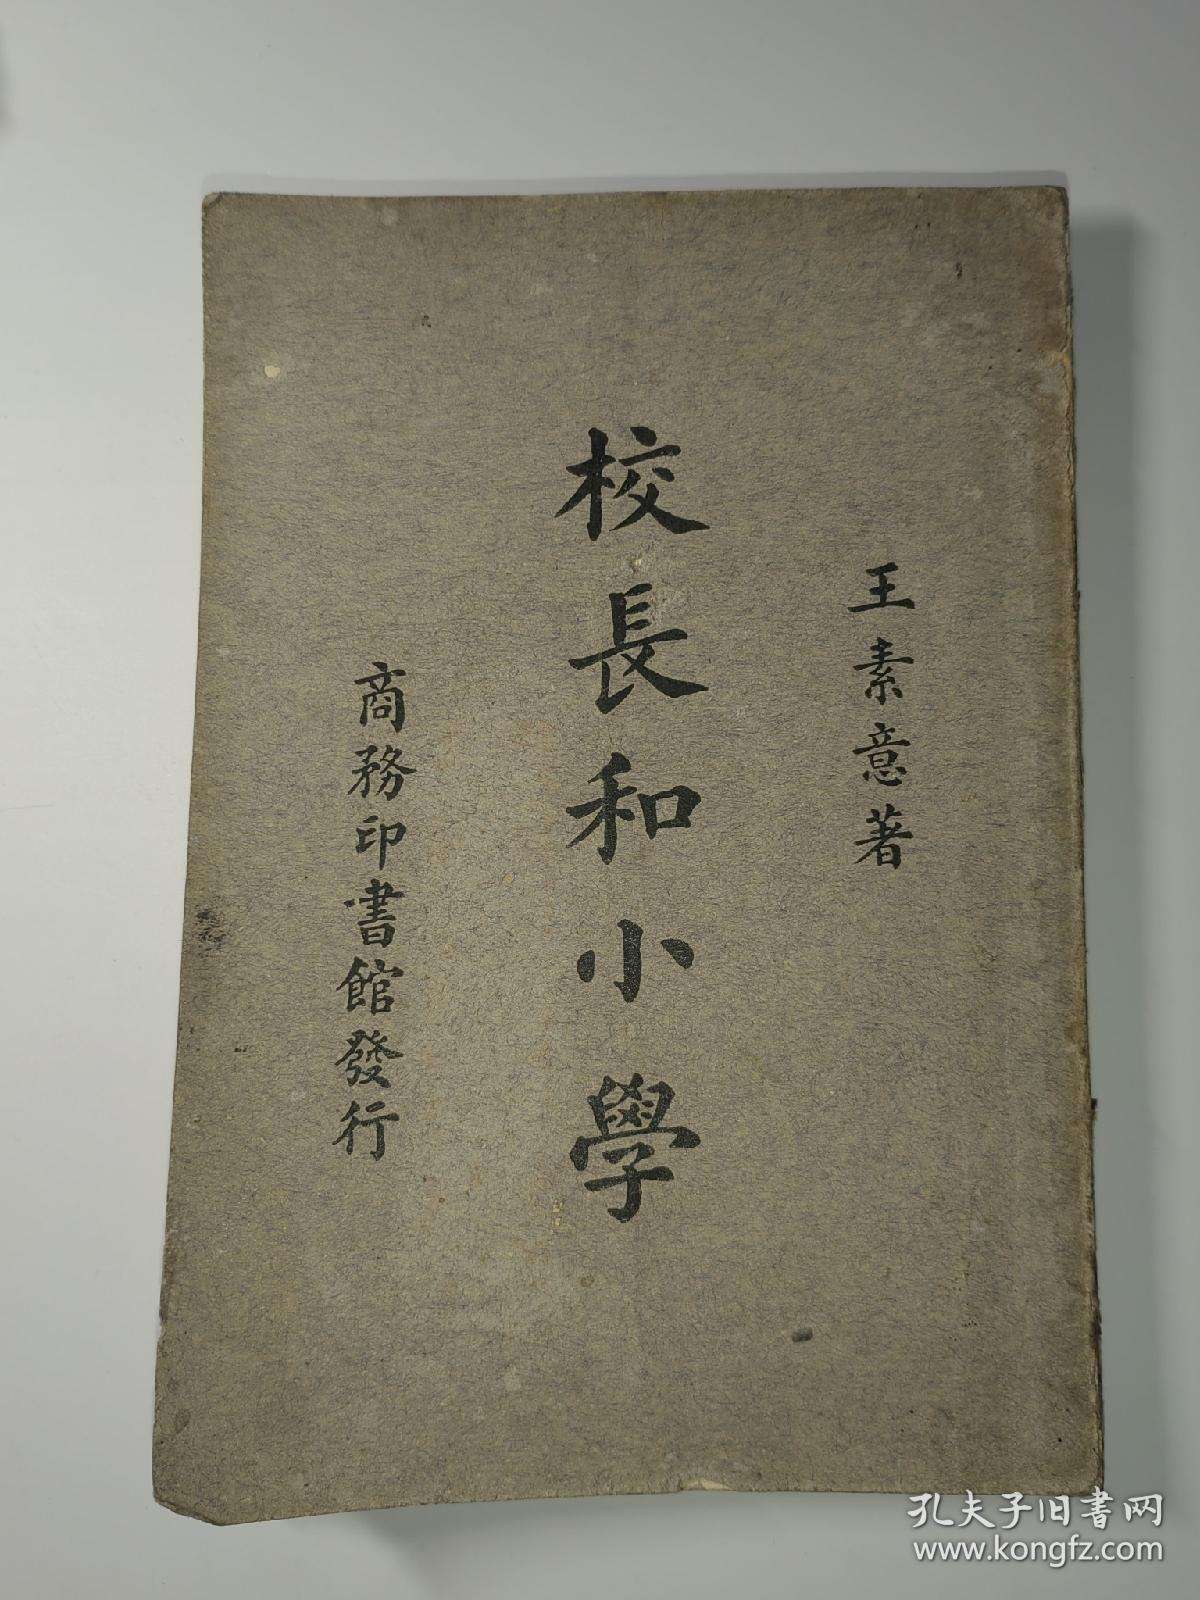 王素意著
校長和小學
商務印書館發行
孔夫子旧書网
www.kongfz.com